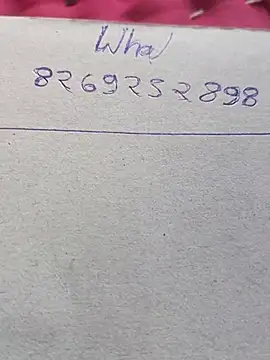 What
8269252898